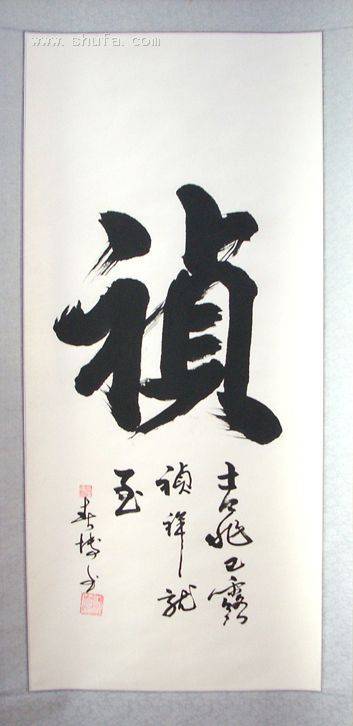 www.shufa.com
禎
吉兆已露
禎祥就
至
春博书